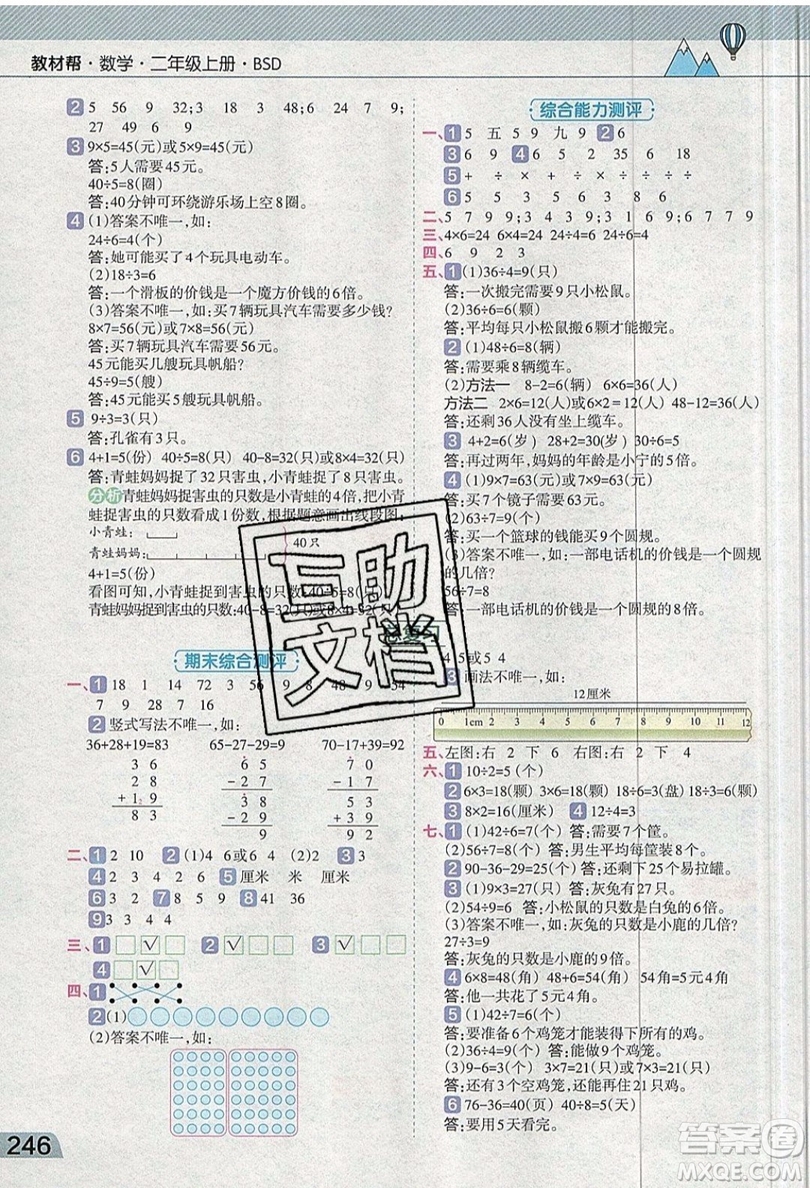 教材帮·数学·二年级上册·BSD
2 5 56 9 32;3 18 3 48;6 24 7 9;
27 49 9 66
3 9×5=45(元)或5×9=45(元)
答:5人需要45元。
40÷5=8(圈)
答:40分钟可环绕游乐场上空8圈。
4 (1)答案不唯一,如:
24÷6=4(个)
答:她可能买了4个玩具电动车。
(2)18÷3=6
答:一个滑板的价钱是一个魔方价钱的6倍。
(3)答案不唯一,如:买7辆玩具汽车需要多少钱?
8×7=56(元)或7×8=56(元)
答:买7辆玩具汽车需要56元。
45元能买几艘玩具帆船?
45÷9=5(艘)
答:45元能买5艘玩具帆船。
5 9÷3=3(只)
答:孔雀有3只。
6 4+1=5(份) 40÷5=8(只) 40-8=32(只)或8×4=32(只)
答:青蛙妈妈捉了32只害虫,小青蛙捉了8只害虫。
分析 青蛙妈妈捉害虫的只数是小青蛙的4倍,把小青
蛙捉害虫的只数看成1份数,根据题意画出线段图:
小青蛙:
青蛙妈妈: 40只
4+1=5(份)
看图可知,小青蛙捉到害虫的只数:40÷5=8(只)
青蛙妈妈捉到害虫的只数:40-8=32(只)或8×4=32(只)
期末综合测评
一、1 18 1 14 72 3 56 9 8 9 54
7 9 28 7 16
2 竖式写法不唯一,如:
36+28+19=83 65-27-29=9 70-17+39=92
3 6 6 5 7 0
2 8 -2 7 -1 7
+1 9 3 8 5 3
8 3 -2 9 +3 9
9 9 2
二、1 2 10 2 (1)4 6或6 4 (2)2 3 3
4 8 2 4 2 5 厘米 米 厘米
6 3 2 7 8 8 41 36
9 3 3 4 4
三、1 ✓ 2 ✓ 3 ✓
4 ✓
四、1
2 (1)
(2)答案不唯一,如:
246
综合能力测评
一、1 5 五 5 9 九 9 2 6
3 6 9 4 6 5 2 35 6 18
5 + + × ÷ × ÷ ÷ ÷
6 5 5 6 3 8 6
二、5 7 9 9;3 43 9 9;9 7 9 7
三、4×6=24 6×4=24 24÷4=6 24÷6=4
四、6 9 2 3
五、1 (1)36÷4=9(只)
答:一次搬完需要9只小松鼠。
(2)36÷6=6(颗)
答:平均每只小松鼠搬6颗才能搬完。
2 (1)48÷6=8(辆)
答:需要乘8辆缆车。
(2)方法一 8-2=6(辆) 6×6=36(人)
方法二 2×6=12(人)或6×2=12(人) 48-12=36(人)
答:还剩36人没有坐上缆车。
3 4+2=6(岁) 28+2=30(岁) 30÷6=5
答:再过两年,妈妈的年龄是小宁的5倍。
答:买7个镜子需要63元。
答:买一个篮球的钱能买9个圆规。
(3)答案不唯一,如:一部电话机的价钱是一个圆规
的几倍?
答:一部电话机的价钱是一个圆规的8倍。
4 5或5 4
画法不唯一,如:
12厘米
0 1cm 2 3 4 5 6 7 8 9 10 11 12
五、左图:右 2 下 6 右图:右 2 下 4
六、1 10÷2=5(个)
2 6×3=18(颗)或3×6=18(颗) 18÷6=3(盘) 18÷3=6(颗)
3 8×2=16(厘米) 4 12÷4=3
七、1 (1)42÷6=7(个) 答:需要7个筐。
(2)56÷7=8(个) 答:男生平均每筐装8个。
2 90-36-29=25(个) 答:还剩下25个易拉罐。
3 (1)42÷7=6(只) 答:灰兔有6只。
(2)54÷9=6 答:小松鼠的只数是白兔的6倍。
(3)答案不唯一,如:灰兔的只数是小鹿的几倍?
27÷3=9
答:灰兔的只数是小鹿的9倍。
4 6×8=48(角) 48+6=54(角) 54角=5元4角
答:他一共花了5元4角。
5 (1)42÷7=6(个)
答:要准备6个鸡笼才能装得下所有的鸡。
(2)36÷4=9(个) 答:能做9个鸡笼。
(3)9-6=3(个) 3×7=21(只)或7×3=21(只)
答:还剩3个空鸡笼,还能再装21只鸡。
6 76-36=40(页) 40÷8=5(天)
答:要用5天看完。
互助
文档
答案圈
MXQE.COM